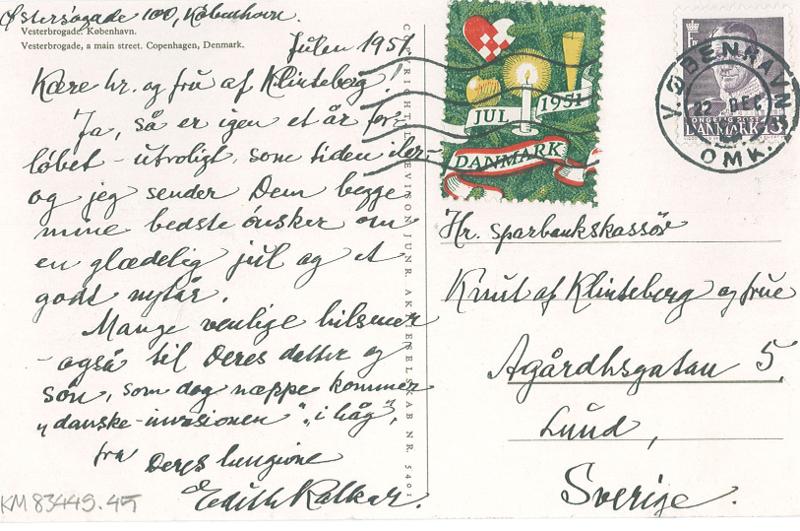 Østersøgade 100, København.
Vesterbrogade, København.
Vesterbrogade, a main street. Copenhagen, Denmark.
Julen 1951
Kære hr. og fru af Klinteberg!
Ja, så er igen et år for-
løbet - utroligt, som tiden iler -
og jeg sender Dem begge
mine bedste ønsker om
en glædelig jul og et
godt nytår.
Mange venlige hilsener
- også til Deres datter og
søn, som dog næppe kommer
"danske-invasionen" "i håg",
fra Deres hengivne
Edith Kalkar.
KM 83449.45
COPYRIGHT LEVISON JUNR. AKTIESELSKAB NR. 5401
JUL 1951
DANMARK
DANMARK
KØBENHAVN
22 DEC
OMK.
Hr. sparbankskassör
Knut af Klinteberg og frue
Agårdhsgatan 5,
Lund,
Sverige.